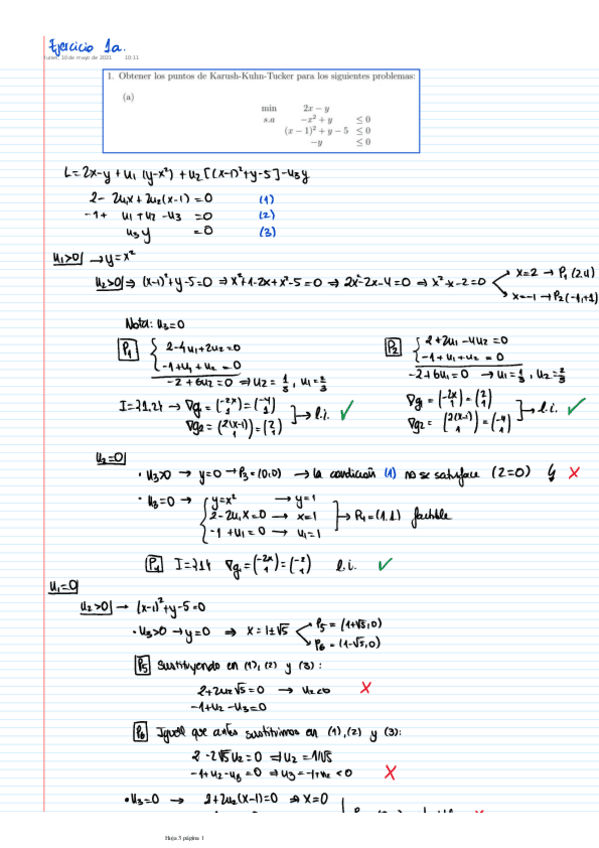 Ejercicio 1a.
lunes, 10 de mayo de 2021 10:11
1. Obtener los puntos de Karush-Kuhn-Tucker para los siguientes problemas:
(a)
min 2x − y
s.a −x² + y ≤ 0
(x − 1)² + y − 5 ≤ 0
−y ≤ 0
L = 2x-y + u₁ (y-x²) + u₂ [(x-1)²+y-5] -u₃y
2 - 2u₁x + 2u₂(x-1) = 0 (1)
-1 + u₁ + u₂ - u₃ = 0 (2)
u₃ y = 0 (3)
u₁>0 → y = x²
u₂>0 ⇒ (x-1)²+y-5=0 ⇒ x²+1-2x+x²-5=0 ⇒ 2x²-2x-4=0 ⇒ x²-x-2=0
x=2 → P₁ (2,4)
x=-1 → P₂ (-1,+1)
Nota: u₃=0
P₁
2-4u₁+2u₂=0
-1+u₁+u₂ = 0
-2+6u₂=0 ⇒ u₂ = 1/3, u₁ = 2/3
I={1,2} → ∇g₁ = (-2x 1) = (-4 1)
∇g₂ = (2(x-1) 1) = (2 1)
→ l.i. ✓
P₂
2+2u₁-4u₂=0
-1+u₁+u₂ = 0
-2+6u₁=0 → u₁ = 1/3, u₂ = 2/3
∇g₁ = (-2x 1) = (2 1)
∇g₂ = (2(x-1) 1) = (-4 1)
→ l.i. ✓
u₂=0
· u₃>0 → y=0 → P₃=(0,0) → la condición (1) no se satisface (2=0) ↯ ✗
· u₃=0 →
y=x² → y=1
2-2u₁x=0 → x=1
-1+u₁=0 → u₁=1
→ P₄=(1,1) factible
P₄ I={1} ∇g₁ = (-2x 1) = (-2 1) l.i. ✓
u₁=0
u₂>0 → (x-1)²+y-5=0
· u₃>0 → y=0 ⇒ x=1±√5
P₅ = (1+√5,0)
P₆ = (1-√5,0)
P₅ Sustituyendo en (1), (2) y (3):
2+2u₂√5=0 → u₂<0 ✗
-1+u₂-u₃=0
P₆ Igual que antes sustituimos en (1), (2) y (3):
2-2√5u₂=0 ⇒ u₂=1/√5
-1+u₂-u₃=0 ⇒ u₃=-1+u₂<0 ✗
· u₃=0 → 2+2u₂(x-1)=0 ⇒ x=0
Hoja 5 página 1